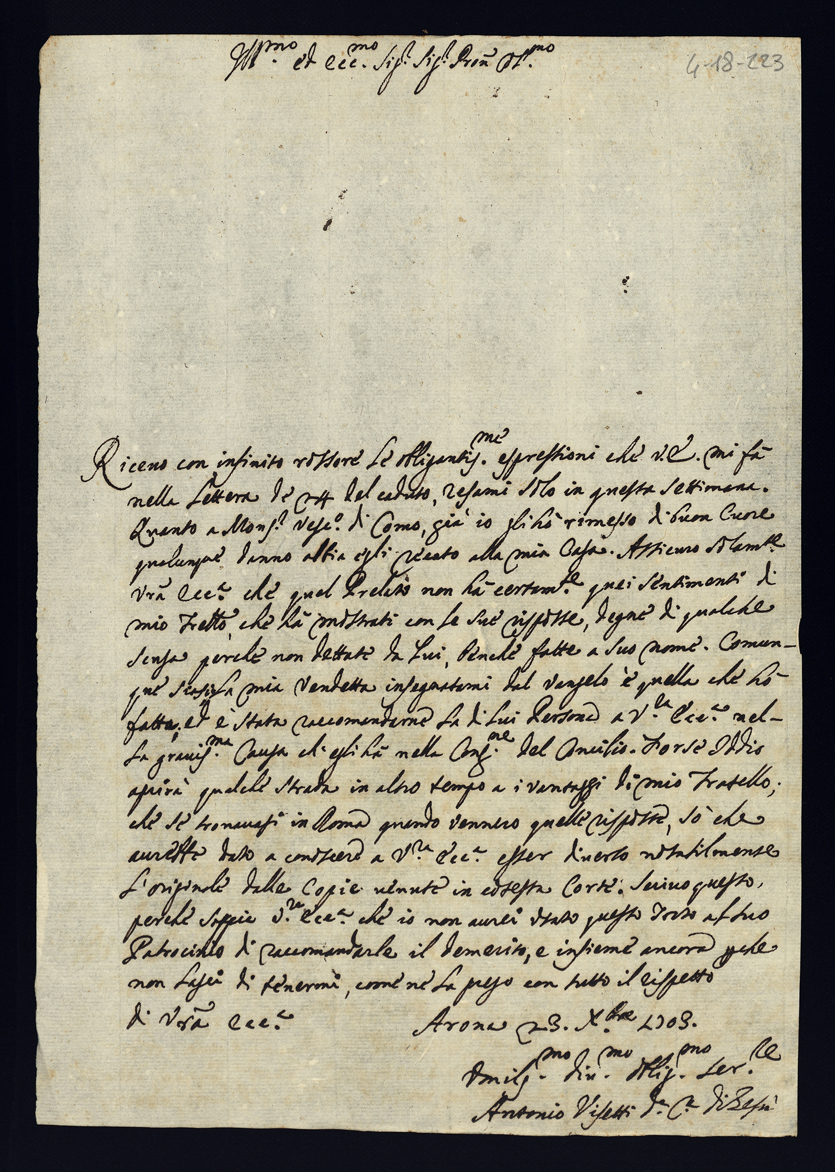 Ill.mo ed Ecc.mo Sig.r Sig.r Pron Col.mo
4-18-223
Riceuo con infinito rossore le obligantis.me espressioni che V.E. mi fà
nella Lettera de 24 del caduto, resami solo in questa settimana.
Quanto a Mons.r Vesc.o di Como, già io gli hò rimesso di buon Cuore
qualunque danno abbia egli recato alla mia Casa. Assicuro solam.te
Vrã Ecc.a che quel Prelato non hà certam.te quei sentimenti di
mio Frello, che hà mostrati con le sue risposte, degne di qualche
scusa perche non dettate da Lui, benche fatte a suo nome. Comun-
que siasi la mia Vendetta insegnatami dal vangelo è quella che hò
fatta, ed è stata raccomandarne la di lui Persona a V.ra Ecc.a nel-
la grauis.ma Causa ch'egli hà nella Cong.ne del Concilio. Forse Iddio
aprirà qualche strada in altro tempo a i vantaggi di mio Fratello;
che se trouauasi in Roma quando vennero quelle risposte, sò che
aurebbe dato a conoscere a V.ra Ecc.a esser diuerso notabilmente
l'originale dalle Copie uenute in cotesta Corte. Scriuo questo,
perche sappia V.ra Ecc.a che io non aurei usato questo Torto al suo
Patrocinio di raccomandarle il demerito, e insieme ancora perche
non lasci di tenermi, come ne la prego con tutto il rispetto
di Vrã Ecc.a Arona 23. X.bre 1703.
Vmilis.mo diu.mo oblig.mo Ser.re
Antonio Visetti d.a C.a di Gesù